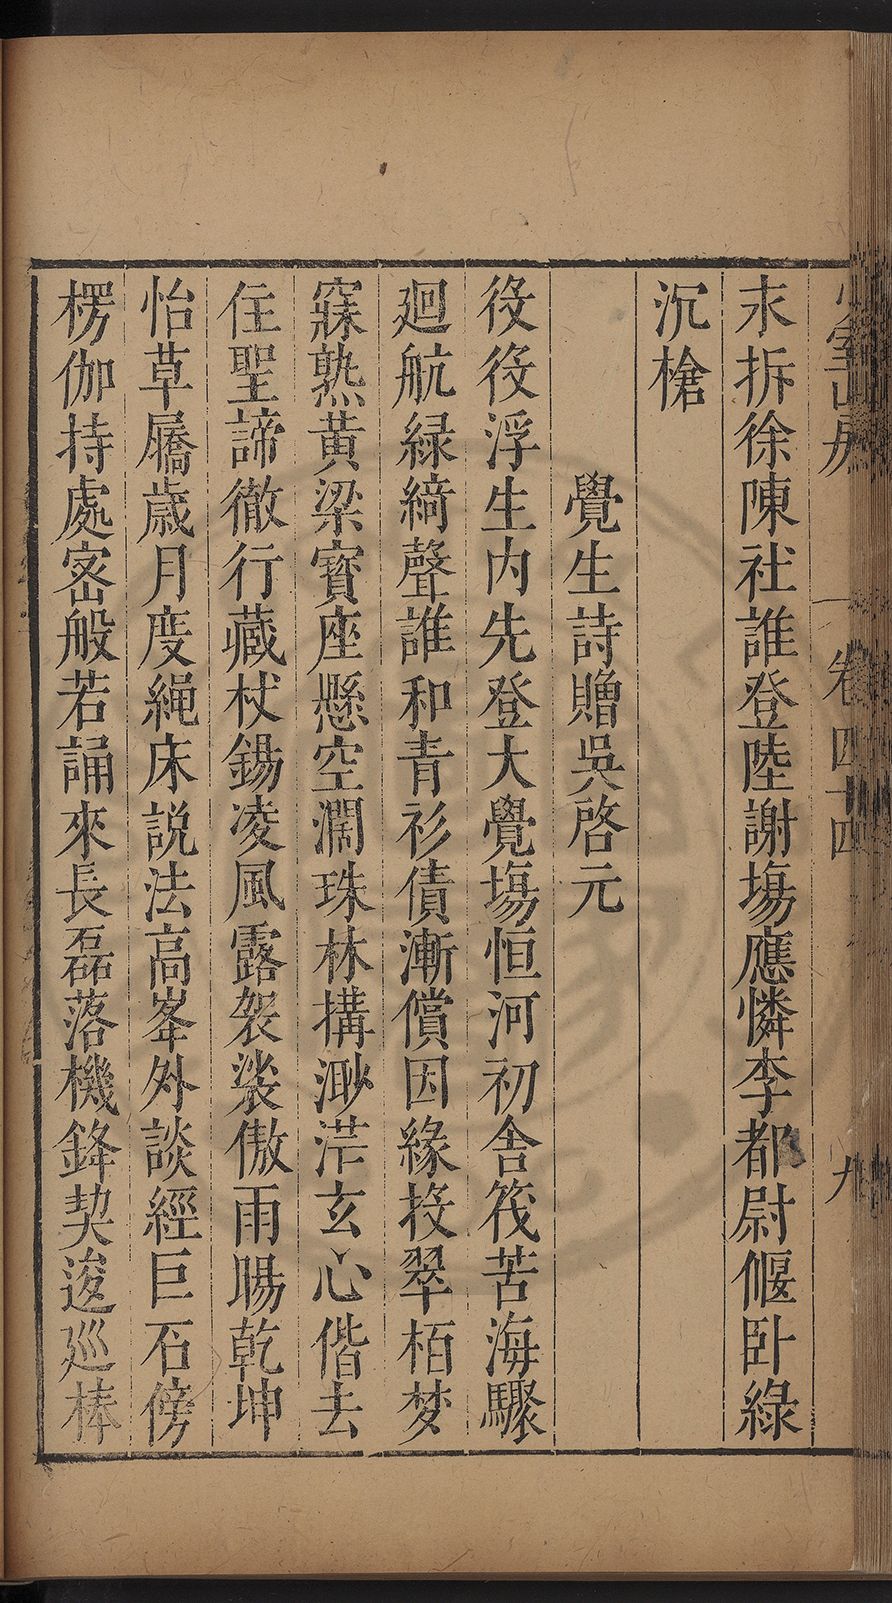 室山房 卷四十四 九
末拆徐陳社誰登陸謝塲應憐李都尉偃卧綠
沉槍
覺生詩贈吳啓元
役役浮生内先登大覺塲恒河初舎筏苦海驟
廻航緑綺聲誰和青衫債漸償因緣投翠栢梦
寐熟黃梁寳座懸空濶珠林搆渺茫玄心偕去
住聖諦徹行藏杖錫凌風露袈裟傲雨暘乾坤
怡草屩歲月度繩床説法高峯外談經巨石傍
楞伽持處密般若誦來長磊落機鋒契逡廵棒